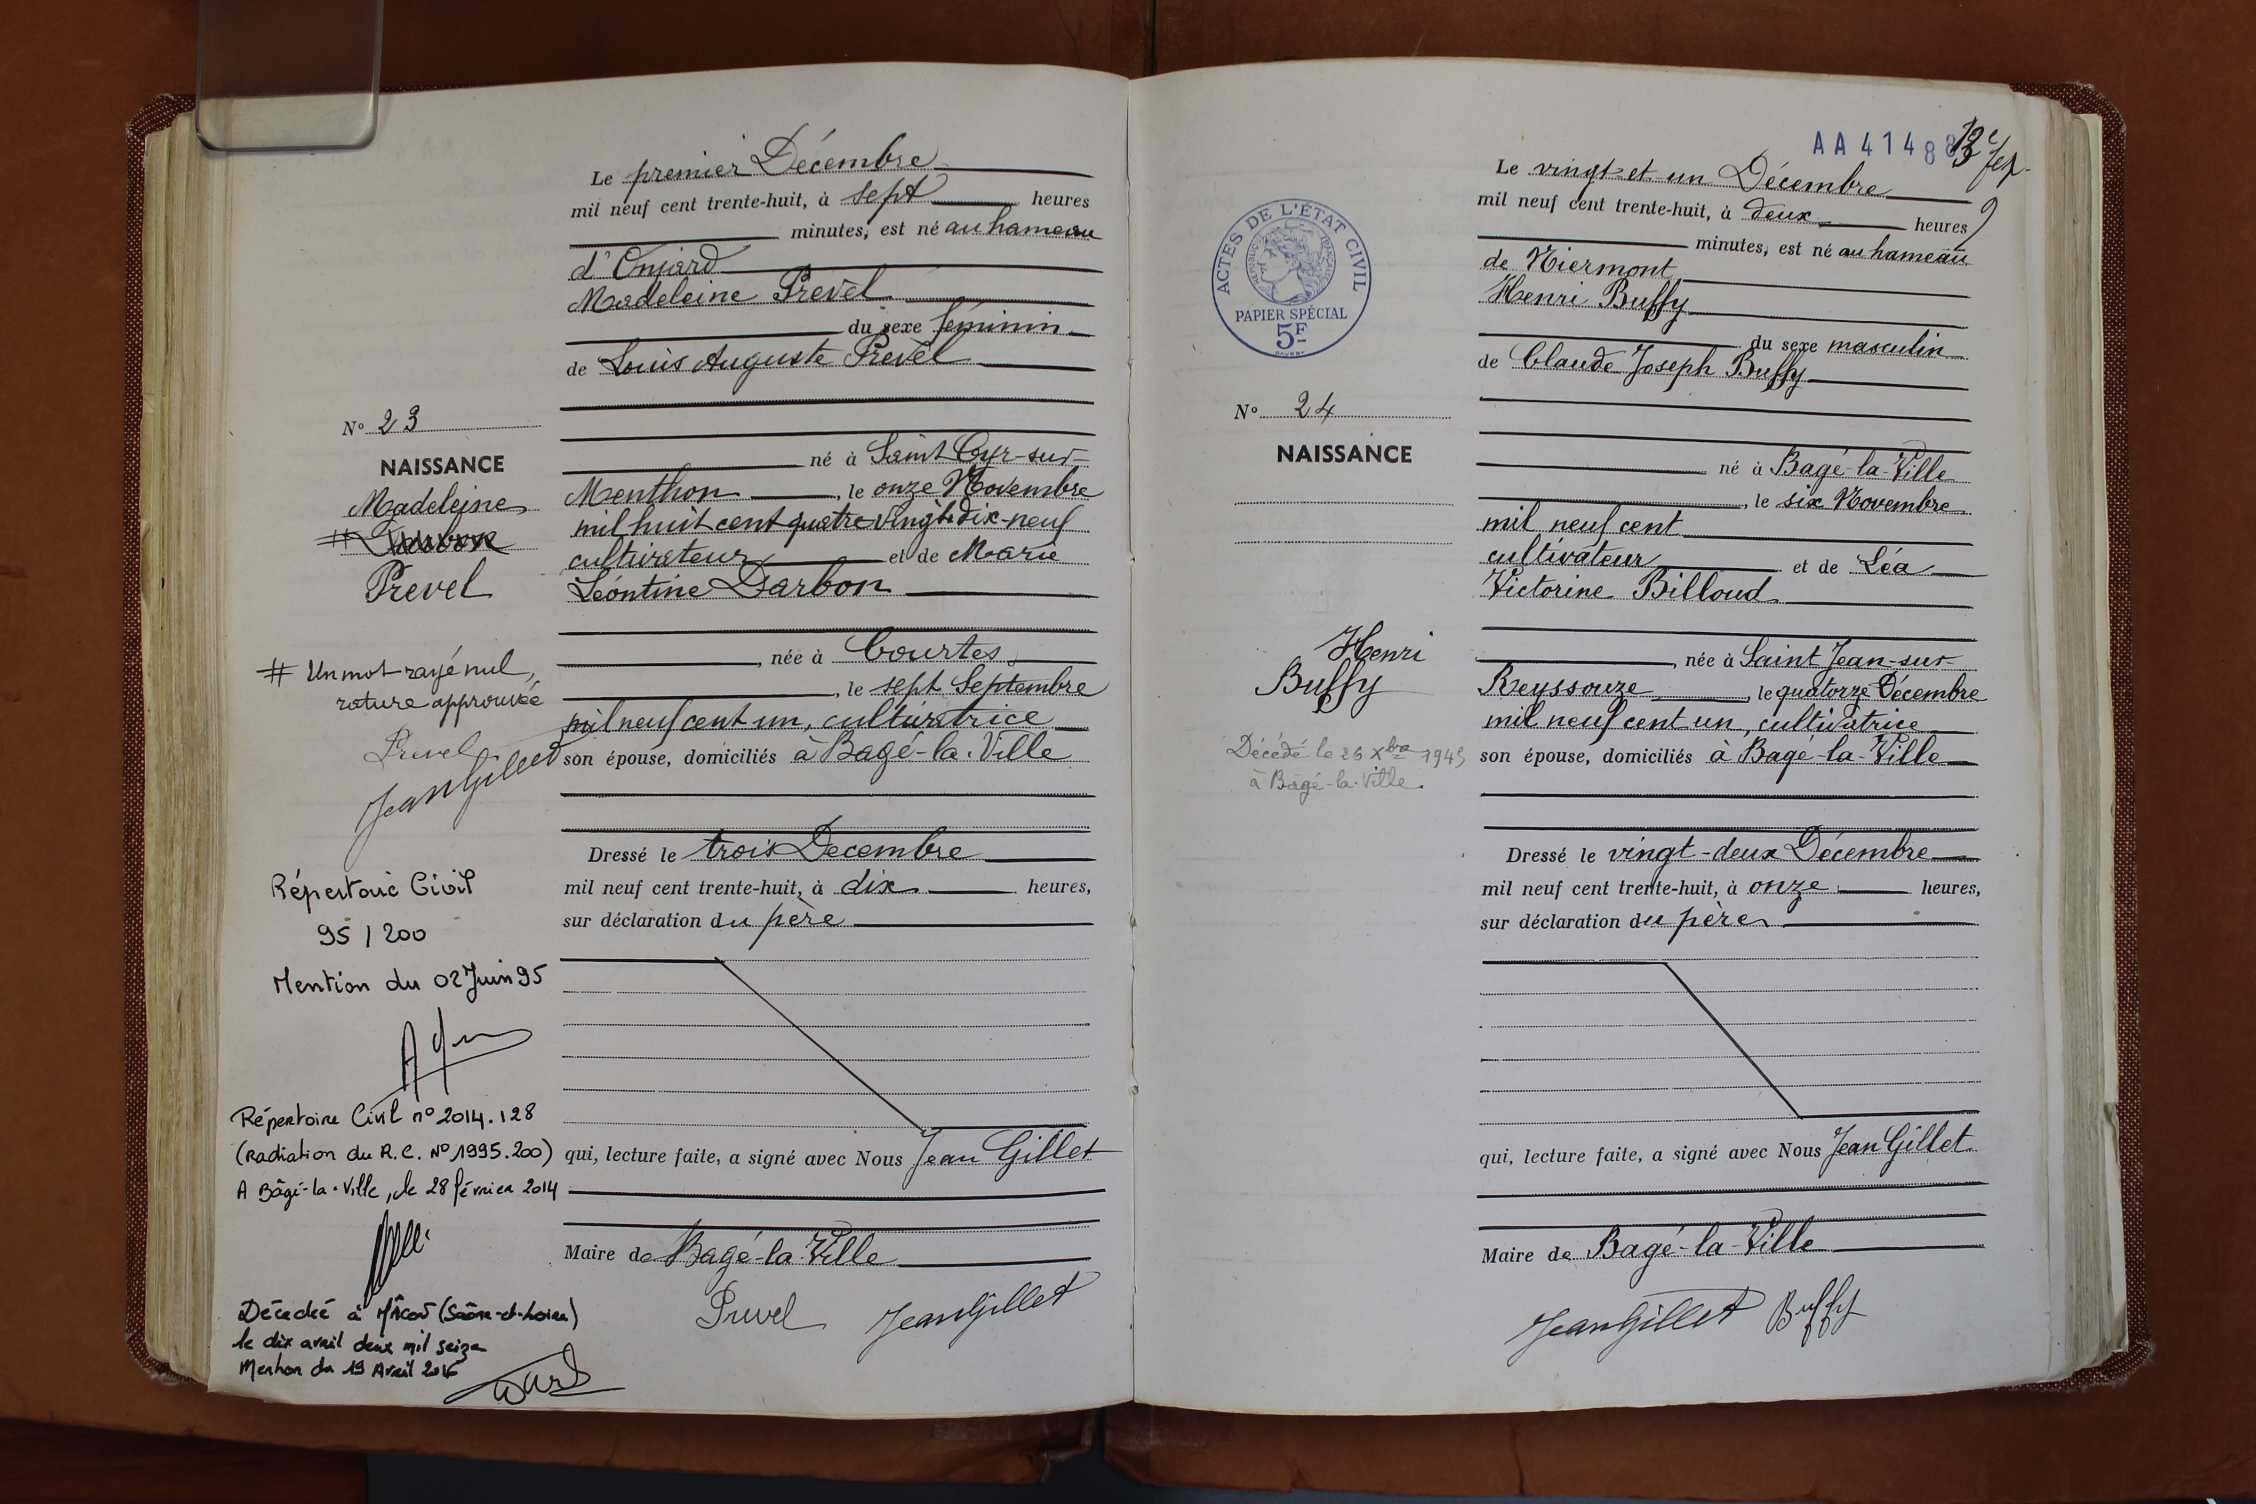 Le premier Décembre
mil neuf cent trente-huit, à sept heures
minutes, est né au hameau
d'Onjard
Madeleine Prevel
du sexe féminin
de Louis Auguste Prevel
né à Saint Cyr-sur-
Menthon, le onze Novembre
mil huit cent quatre vingt dix-neuf
cultivateur et de Marie
Léontine Darbon
née à Courtes
, le sept Septembre
mil neuf cent un, cultivatrice
son épouse, domiciliés à Bagé-la-Ville
Dressé le trois Decembre
mil neuf cent trente-huit, à dix heures,
sur déclaration du père
qui, lecture faite, a signé avec Nous Jean Gillet
Maire de Bagé-la-Ville
Prevel Jean Gillet
No 23
NAISSANCE
Madeleine
#
Prevel
# Un mot rayé nul,
rature approuvée
Prevel
Jean Gillet
Répertoire Civil
95 / 200
Mention du 02 Juin 95
Répertoire Civil no 2014.128
(Radiation du R.C. No 1995.200)
A Bâgé-la-Ville, le 28 février 2014
Décédé à Mâcon (Saône-et-Loire)
le dix avril deux mil seize
Mention du 19 Avril 2016
AA 4148
Le vingt et un Décembre
mil neuf cent trente-huit, à deux heures
minutes, est né au hameau
de Niermont
Henri Buffy
du sexe masculin
de Claude Joseph Buffy
né à Bagé-la-Ville
, le six Novembre
mil neuf cent
cultivateur et de Léa
Victorine Billoud
, née à Saint Jean-sur-
Reyssouze, le quatorze Décembre
mil neuf cent un, cultivatrice
son épouse, domiciliés à Bagé-la-Ville
Dressé le vingt-deux Décembre
mil neuf cent trente-huit, à onze heures,
sur déclaration du père
qui, lecture faite, a signé avec Nous Jean Gillet
Maire de Bagé-la-Ville
Jean Gillet Buffy
ACTES DE L'ÉTAT CIVIL
PAPIER SPÉCIAL
5F
No 24
NAISSANCE
Henri
Buffy
Décédé le 26 Xbre
à Bâgé-la-Ville